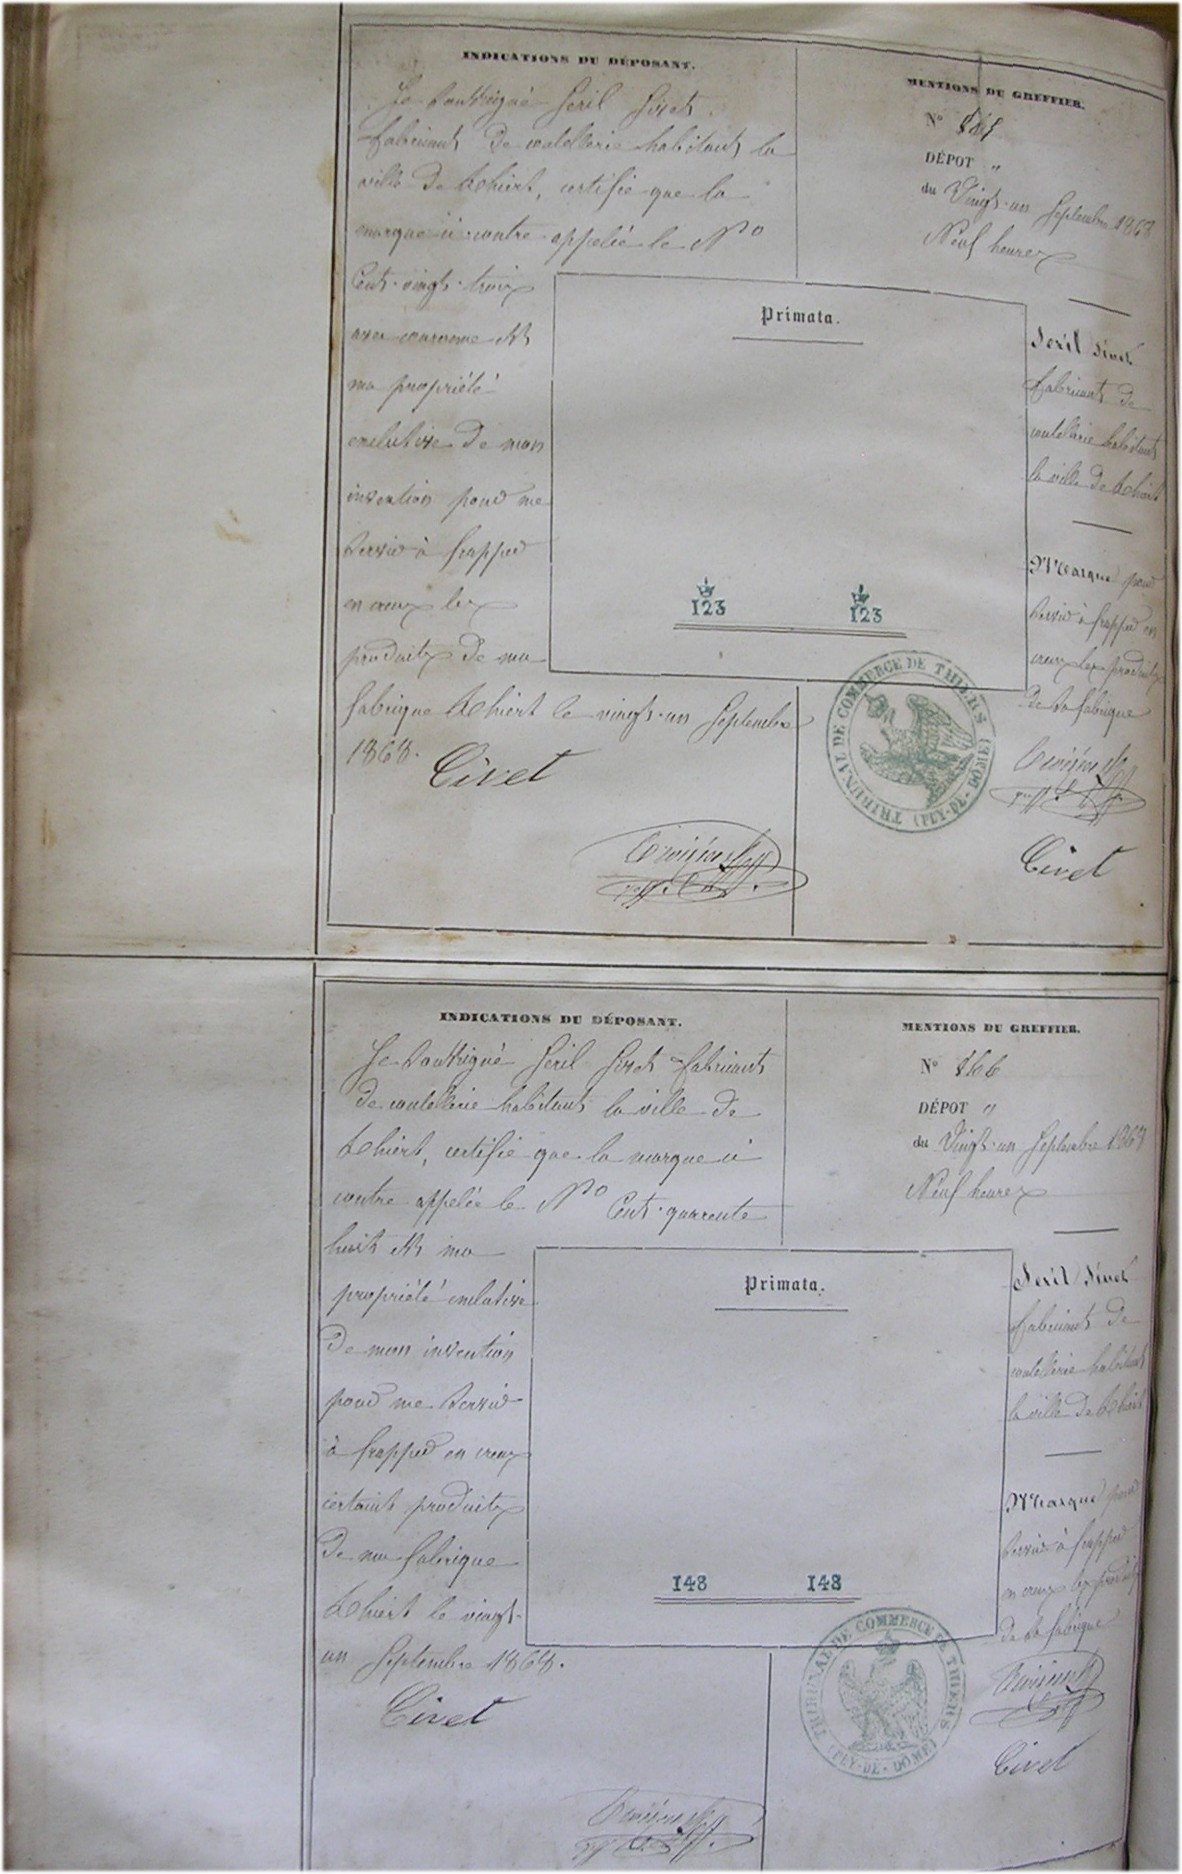 INDICATIONS DU DÉPOSANT.
Je soussigné
fabricant de coutellerie habitant la
ville de Thiers, certifie que la
marque ci contre appelée le No
Cent vingt trois
avec couronne est
ma propriété
exclusive de mon
invention pour me
servir à frapper
en creux les
produits de ma
fabrique Thiers le vingt-un Septembre
1868.
MENTIONS DU GREFFIER.
No
DÉPOT "
du Vingt-un Septembre 1868
Neuf heures
Primata.
123 123
fabricant de
coutellerie habitant
la ville de Thiers
Marque pour
servir à frapper en
creux les produits
de sa fabrique
TRIBUNAL DE COMMERCE DE THIERS (PUY-DE-DOME)
INDICATIONS DU DÉPOSANT.
Je soussigné fabricant
de coutellerie habitant la ville de
Thiers, certifie que la marque ci
contre appelée le No Cent quarente
huit est ma
propriété exclusive
de mon invention
pour me servir
à frapper en creux
certains produits
de ma fabrique
Thiers le vingt-
un Septembre 1868.
MENTIONS DU GREFFIER.
No 866
DÉPOT "
du Vingt-un Septembre 1868
Neuf heures
Primata.
148 148
fabricant de
coutellerie habitant
la ville de Thiers
Marque pour
servir à frapper
en creux les produits
de sa fabrique
TRIBUNAL DE COMMERCE DE THIERS (PUY-DE-DOME)